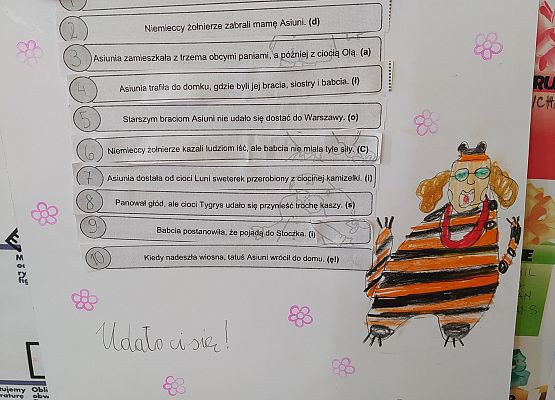 2 Niemieccy żołnierze zabrali mamę Asiuni. (d)
3 Asiunia zamieszkała z trzema obcymi paniami, a później z ciocią Olą. (a)
4 Asiunia trafiła do domku, gdzie byli jej bracia, siostry i babcia. (ł)
5 Starszym braciom Asiuni nie udało się dostać do Warszawy. (o)
6 Niemieccy żołnierze kazali ludziom iść, ale babcia nie miała tyle siły. (C)
7 Asiunia dostała od cioci Luni sweterek przerobiony z ciocinej kamizelki. (i)
8 Panował głód, ale cioci Tygrys udało się przynieść trochę kaszy. (s)
9 Babcia postanowiła, że pojadą do Stoczka. (i)
10 Kiedy nadeszła wiosna, tatuś Asiuni wrócił do domu. (ę!)
Udało ci się!